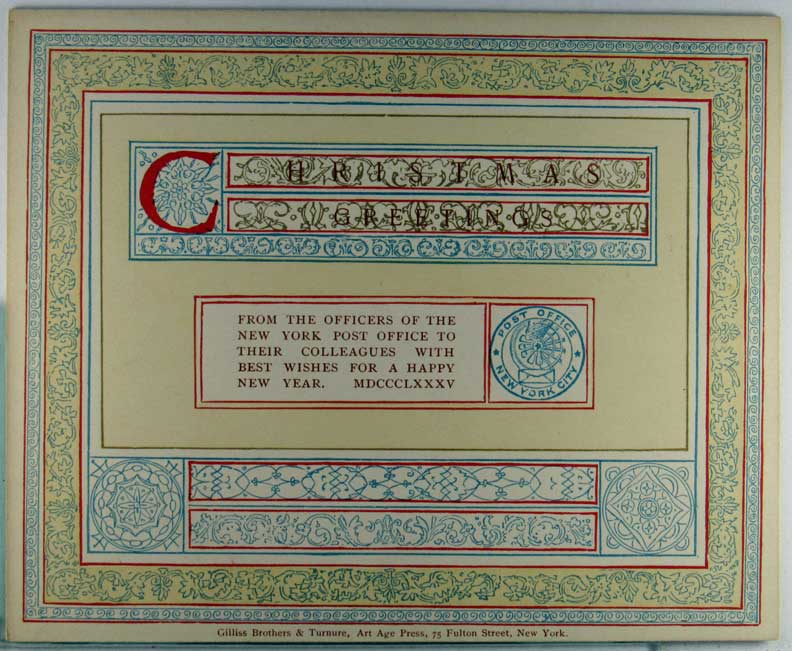 CHRISTMAS
GREETINGS
FROM THE OFFICERS OF THE
NEW YORK POST OFFICE TO
THEIR COLLEAGUES WITH
BEST WISHES FOR A HAPPY
NEW YEAR. MDCCCLXXXV
POST OFFICE
NEW YORK CITY
Gilliss Brothers & Turnure, Art Age Press, 75 Fulton Street, New York.